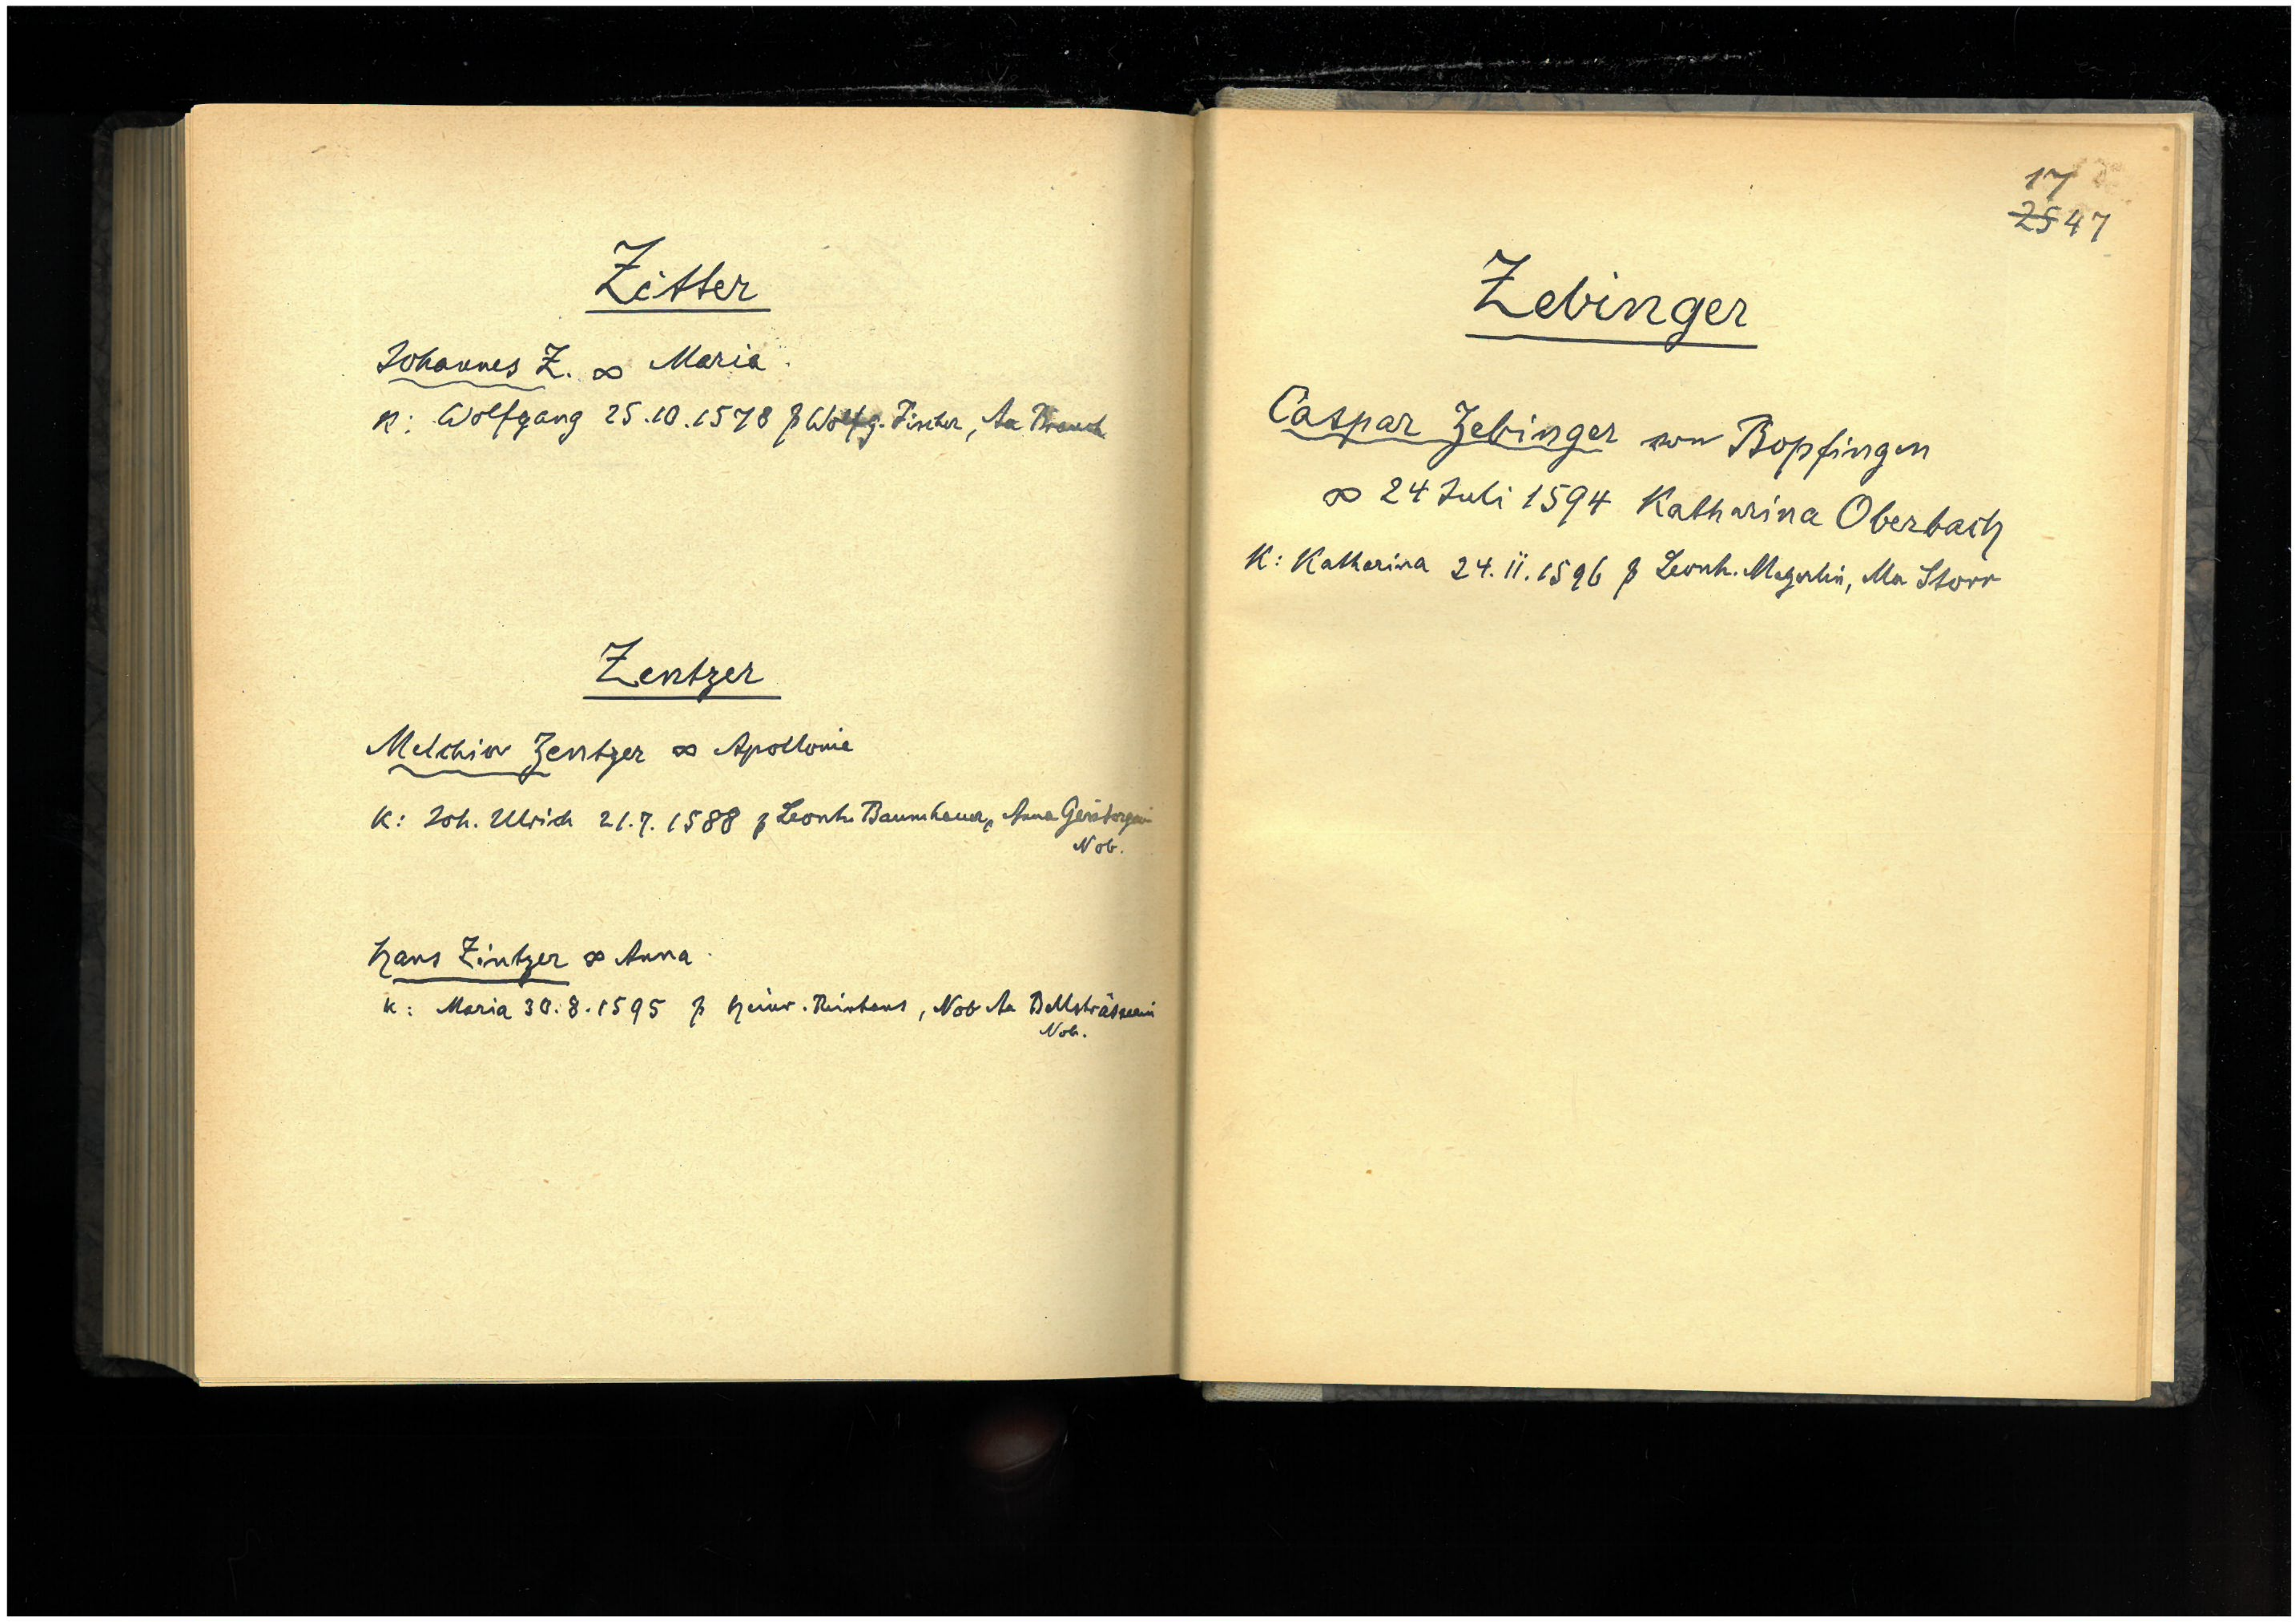 Zitter
Johannes Z. ∞ Maria
K: Wolfgang 25.10.1578 p Wolfg. Fischer, Aa Brauch
Zentzer
Melchior Zentzer ∞ Apollonie
K: Joh. Ulrich 21.7.1588 p Leonh. Baumhauer, Anna
Nob.
Hans Zintzer ∞ Anna
K: Maria 30.8.1595 p Heinr. , Nob Aa
Nob.
17
25 47
Zebinger
Caspar Zebinger von Bopfingen
∞ 24 Juli 1594 Katharina Oberbach
K: Katharina 24.ii.1596 p Leonh. Magerlin, Ma Storr